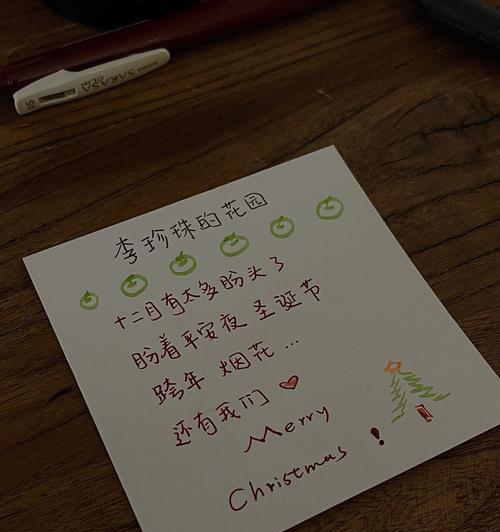 SARASA
05
李珍珠的花园
十二月有太多盼头了
盼着平安夜 圣诞节
跨年 烟花 ...
还有我们
Merry
Christmas !